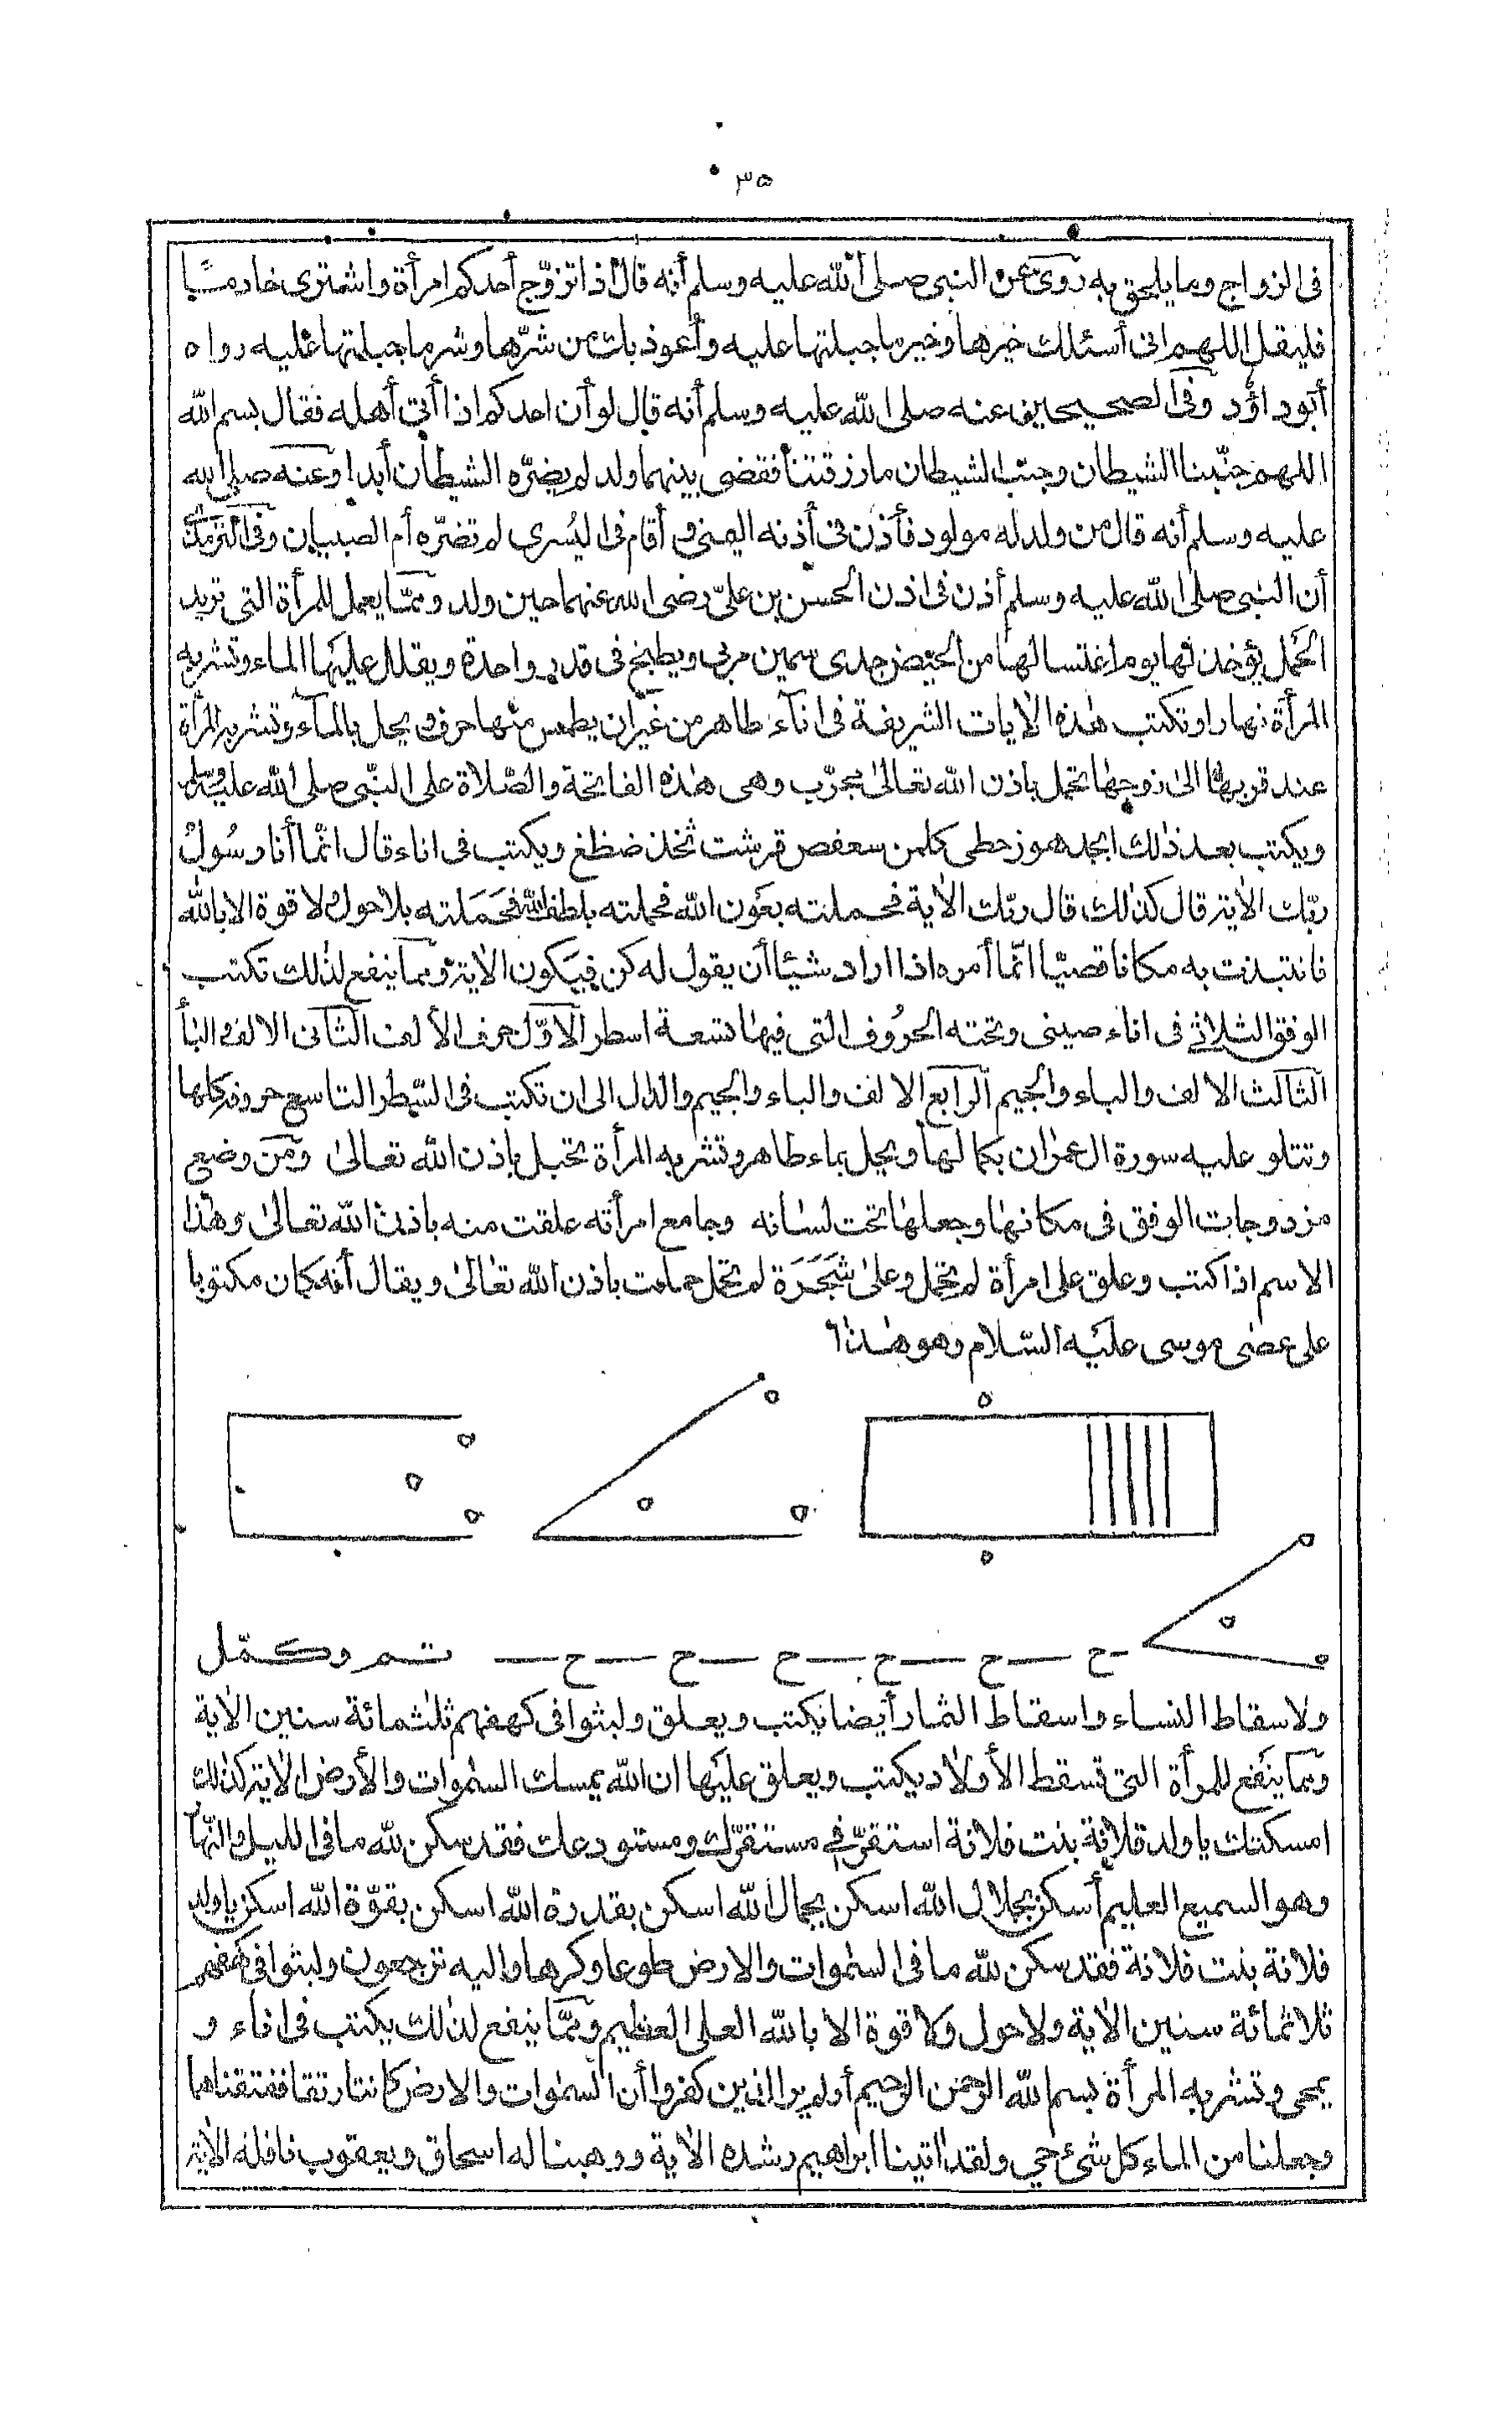 ٣٥
فى الزواج وما يلحق به روى عن النبى صلى الله عليه وسلم أنه قال اذا تزوّج أحدكم امرأة واشترى خادمًا
فليقل اللهم انى أسئلك خيرها وخير ما جبلتها عليه وأعوذ بك من شرّها وشر ما جبلتها عليه رواه
أبو داؤد وفى الصحيحين عنه صلى الله عليه وسلم أنه قال لو أن احدكم اذا أتى أهله فقال بسم الله
اللهم جنّبنا الشيطان وجنّب الشيطان ما رزقتنا فقضى بينهما ولد لم يضرّه الشيطان أبدا وعنه صلى الله
عليه وسلم أنه قال من ولد له مولود فأذن فى أذنه اليمنى و أقام فى اليُسرى لم تضرّه أم الصبيان وفى الترمذى
أن النبى صلى الله عليه وسلم أذن فى اذن الحسن بن علىّ رضى الله عنهما حين ولد وممّا يعمل للمرأة التى تريد
الحَمل يؤخذ لها يوم اغتسالها من الحيض جدى سمين مربى ويطبخ فى قدر واحدة ويقلل عليها الماء وتشربه
المرأة نهارا وتكتب هذه الأيات الشريفة فى انآء طاهر من غير ان يطمس منها حرف ويحل بالمآء وتشربه المرأة
عند قربها الى زوجها تحمل باذن الله تعالىٰ مجرّب وهى هٰذه الفاتحة والصّلاة على النّبى صلى الله عليه وسلم
ويكتب بعد ذٰلك ابجد هوز حطى كلمن سعفص قرشت ثخذ ضظغ ويكتب فى اناء قال انّما أنا رسُولُ
ربّك الأية قال كذٰلك قال ربّك الأية فحملته بعَون الله فحملته بلطف الله فحَمَلته بلا حول ولا قوة الا بالله
فانتبذت به مكانا قصيّا انّما أمره اذا اراد شيئا أن يقول له كن فيَكون الأية وممّا ينفع لذٰلك تكتب
الوفق الثلاثى فى اناء صينى وتحته الحرُوف التى فيها تسعة اسطر الأوّل حرف الألف الثّانى الالف والبأ
الثالث الالف والباء والجيم الرابع الالف والباء والجيم والدال الى ان تكتب فى السّطر التاسع حروفه كلها
وتتلو عليه سورة ال عمرٰان بكمالها ويحل بماء طاهر وتشربه المرأة تحبل باذن الله تعالىٰ ومَن وضع
مزدوجات الوفق فى مكانها وجعلها تحت لسانه وجامع امرأته علقت منه باذن الله تعالىٰ وهٰذا
الاسم اذا كتب وعلق على امرأة لم تحمل وعلىٰ شَجَرَة لم تحمل حملت باذن الله تعالىٰ ويقال أنه كان مكتوبا
على عصى موسى عليه السّلام وهو هٰذا
ح ح ح ح ح ح تم وكمّل
ولاسقاط النساء واسقاط الثمار أيضا يكتب ويعلق ولبثوا فى كهفهم ثلٰثمائة سنين الأية
وممّا ينفع للمرأة التى تسقط الأولاد يكتب ويعلق عليها ان الله يمسك السمٰوات والأرض الأية كذٰلك
امسكتك يا ولد فلانة بنت فلانة استقرّ فى مستقرّك ومستودعك فقد سكن لله ما فى الليل والنّهار
وهو السميع العليم أسكن بجلال الله اسكن بجمال الله اسكن بقدرة الله اسكن بقوّة الله اسكن يا ولد
فلانة بنت فلانة فقد سكن لله ما فى السمٰوات والارض طوعا وكرها واليه ترجعون ولبثوا فى كهفهم
ثلاثمائة سنين الأية ولا حول ولا قوة الا بالله العلى العظيم وممّا ينفع لذٰلك يكتب فى اناء و
يمحى وتشربه المرأة بسم الله الرحمٰن الرحيم أولم ير الذين كفروا أن السمٰوات والارض كانتا رتقا ففتقناهما
وجعلنا من الماء كل شئ حي ولقد اتينا ابراهيم رشده الأية ووهبنا له اسحاق ويعقوب نافلة الأية